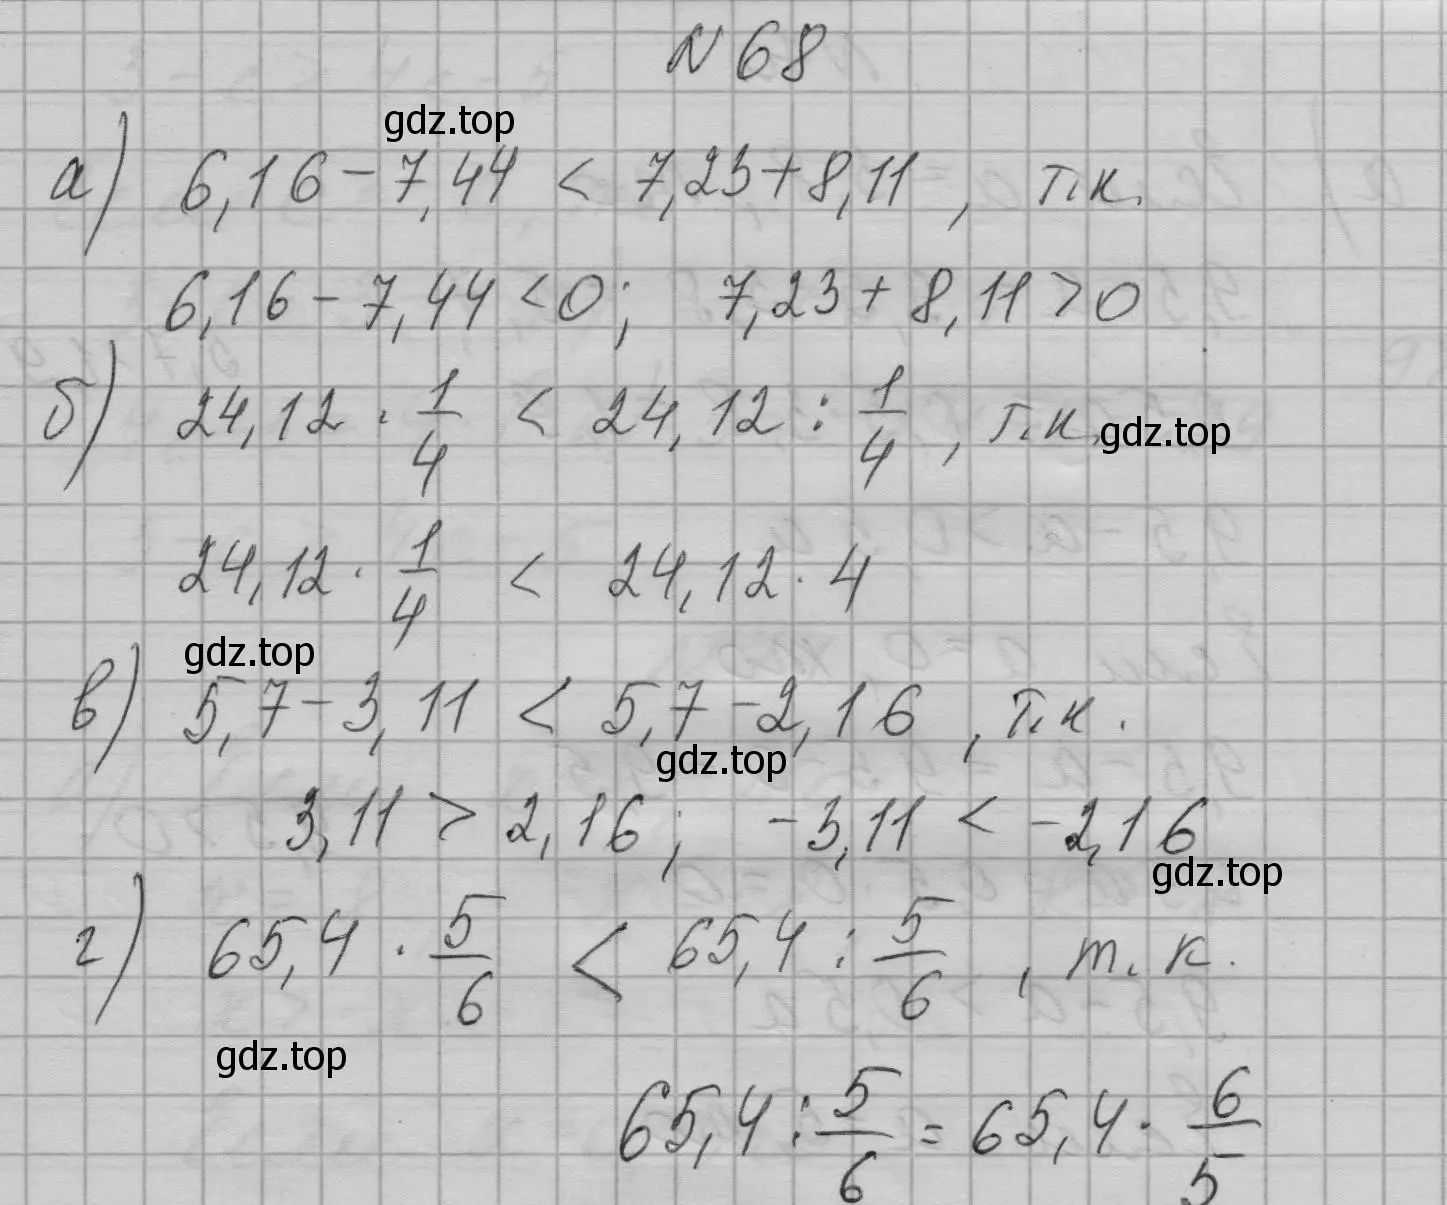 № 68
gdz.top
а) 6,16 - 7,44 < 7,23 + 8,11 , т.к.
6,16 - 7,44 < 0; 7,23 + 8,11 > 0
б) 24,12 · 1/4 < 24,12 : 1/4 , т.к. gdz.top
24,12 · 1/4 < 24,12 · 4
gdz.top
в) 5,7 - 3,11 < 5,7 - 2,16 , т.к.
gdz.top
3,11 > 2,16; -3,11 < -2,16
gdz.top
г) 65,4 · 5/6 < 65,4 : 5/6 , т.к.
gdz.top
65,4 : 5/6 = 65,4 · 6/5